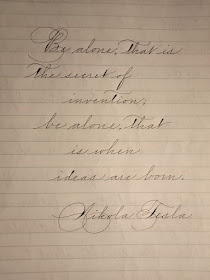 Be alone, that is
the secret of
invention;
be alone, that
is when
ideas are born.
Nikola Tesla